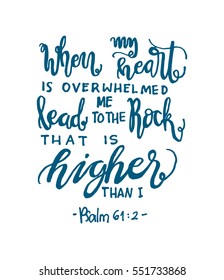 When my heart
IS OVERWHELMED
lead ME TO THE Rock
THAT IS
higher
THAN I
-Psalm 61:2-
shutterstock.com · 551733868